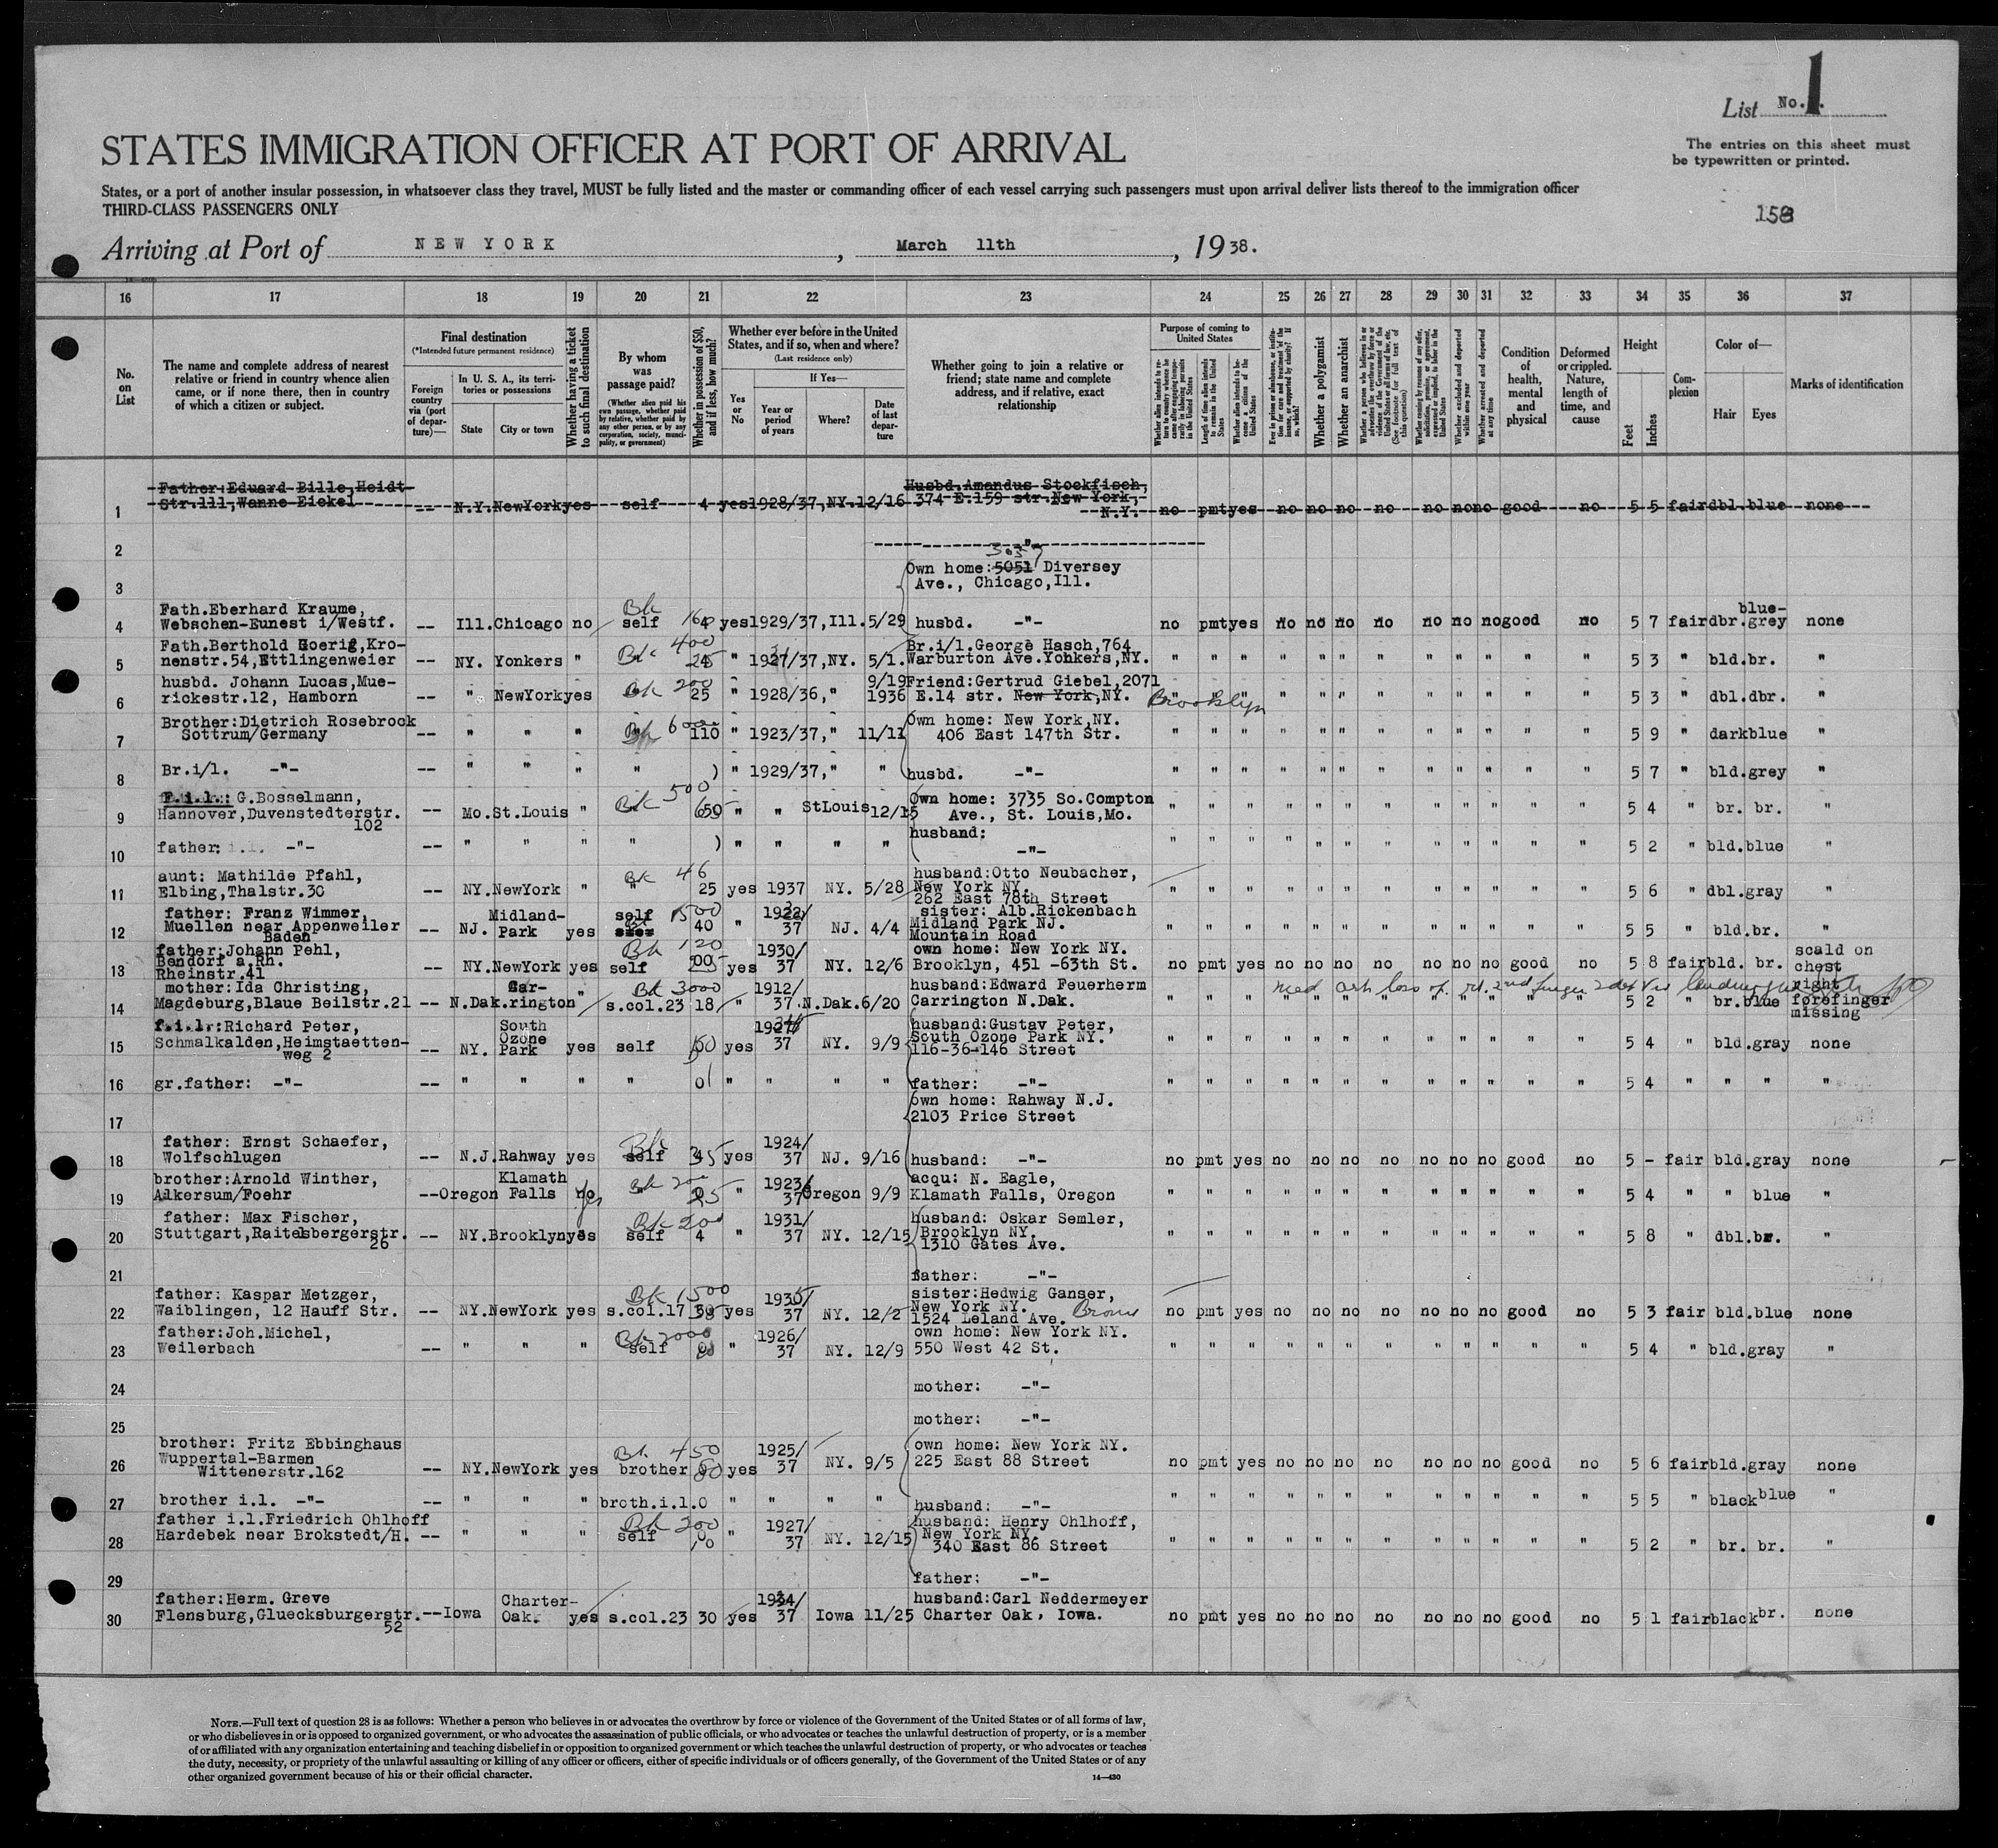 List No. 1.
STATES IMMIGRATION OFFICER AT PORT OF ARRIVAL
The entries on this sheet must
be typewritten or printed.
States, or a port of another insular possession, in whatsoever class they travel, MUST be fully listed and the master or commanding officer of each vessel carrying such passengers must upon arrival deliver lists thereof to the immigration officer
THIRD-CLASS PASSENGERS ONLY
158
Arriving at Port of NEW YORK, March 11th, 1938.
16 17 18 19 20 21 22 23 24 25 26 27 28 29 30 31 32 33 34 35 36 37
No. on List
The name and complete address of nearest
relative or friend in country whence alien
came, or if none there, then in country
of which a citizen or subject.
Final destination
(*Intended future permanent residence)
Foreign country via (port of departure)—
In U. S. A., its territories or possessions
State
City or town
Whether having a ticket to such final destination
By whom was passage paid?
(Whether alien paid his own passage, whether paid by relative, whether paid by any other person, or by any corporation, society, municipality, or government)
Whether in possession of $50, and if less, how much?
Whether ever before in the United
States, and if so, when and where?
(Last residence only)
Yes or No
If Yes—
Year or period of years
Where?
Date of last departure
Whether going to join a relative or
friend; state name and complete
address, and if relative, exact
relationship
Purpose of coming to United States
Length of time alien intends to remain in the United States
Whether alien intends to become a citizen of the United States
Whether a polygamist
Whether an anarchist
Whether excluded and deported within one year
Whether arrested and deported at any time
Condition of health, mental and physical
Deformed or crippled. Nature, length of time, and cause
Height
Feet
Inches
Complexion
Color of—
Hair
Eyes
Marks of identification
Father:Eduard Bille,Heidt-
Husbd.Amandus Stockfisch,
1 Str.111,Wanne Eickel -- N.Y.NewYork yes self 4 yes 1928/37,NY.12/16 374 E.159 str.New York, no pmt yes no no no no no no no good no 5 5 fair dbl.blue none
N.Y.
2 -"-
Own home:5051 Diversey
3 Ave., Chicago,Ill.
Fath.Eberhard Kraume, Bk blue-
4 Webschen-Eunest i/Westf. -- Ill.Chicago no self yes 1929/37,Ill.5/29 husbd. -"- no pmt yes no no no no no no no good no 5 7 fair dbr.grey none
Fath.Berthold Goerig,Kro- Bk 400 Br.i/l.George Hasch,764
5 nenstr.54,Ettlingenweier -- NY. Yonkers " " 1927/37,NY. 5/1. Warburton Ave.Yonkers,NY. " " " " " " " " " " " " 5 3 " bld.br. "
husbd. Johann Lucas,Mue- 9/19 Friend:Gertrud Giebel,2071
6 rickestr.12, Hamborn -- " NewYork yes Bk 200 25 " 1928/36," 1936 E.14 str. New York,NY. Brooklyn " " " " " " " " " " 5 3 " dbl.dbr. "
Brother:Dietrich Rosebrock Own home: New York,NY.
7 Sottrum/Germany -- " " " Bk 110 " 1923/37," 11/11 406 East 147th Str. " " " " " " " " " " " " 5 9 " dark blue "
8 Br.i/l. -"- -- " " " " ) " 1929/37," " husbd. -"- " " " " " " " " " " " " 5 7 " bld.grey "
F.i.l.: G.Bosselmann, Bk 500 Own home: 3735 So.Compton
9 Hannover,Duvenstedterstr. -- Mo.St.Louis " " " StLouis 12/15 Ave., St. Louis,Mo. " " " " " " " " " " " " 5 4 " br. br. "
102
husband:
10 father: i.l. -"- -- " " " " ) " " " " -"- " " " " " " " " " " " " 5 2 " bld.blue "
aunt: Mathilde Pfahl, Bk 46 husband:Otto Neubacher,
11 Elbing,Thalstr.30 -- NY.NewYork " " 25 yes 1937 NY. 5/28 New York NY. " " " " " " " " " " " " 5 6 " dbl.gray "
262 East 78th Street
father: Franz Wimmer, Midland- self 1500 sister: Alb.Rickenbach
12 Muellen near Appenweiler -- NJ. Park yes 40 " 1922/37 NJ. 4/4 Midland Park NJ. " " " " " " " " " " " " 5 5 " bld.br. "
Baden Mountain Road
father:Johann Pehl, Bk 120 1930/ own home: New York NY. scald on
13 Bendorf a.Rh. -- NY.NewYork yes self yes 37 NY. 12/6 Brooklyn, 451 -63th St. no pmt yes no no no no no no no good no 5 8 fair bld. br. chest
Rheinstr.41
mother: Ida Christing, Car- Bk 3000 1912/ husband:Edward Feuerherm right
14 Magdeburg,Blaue Beilstr.21 -- N.Dak.rington " s.col.23 18 " 37 N.Dak.6/20 Carrington N.Dak. " " " " " " " " " " " " 5 2 " br.blue forefinger
missing
f.i.l.:Richard Peter, South 1927/ husband:Gustav Peter,
15 Schmalkalden,Heimstaetten- -- NY. Ozone Park yes self yes 37 NY. 9/9 South Ozone Park NY. " " " " " " " " " " " " 5 4 " bld.gray none
weg 2 116-36-146 Street
16 gr.father: -"- -- " " " " 0 " " " " father: -"- " " " " " " " " " " " " 5 4 " " " "
own home: Rahway N.J.
17 2103 Price Street
father: Ernst Schaefer, Bk 1924/
18 Wolfschlugen -- N.J.Rahway yes self yes 37 NJ. 9/16 husband: -"- no pmt yes no no no no no no no good no 5 - fair bld.gray none
brother:Arnold Winther, Klamath Bk 200 1923/ acqu: N. Eagle,
19 Alkersum/Foehr --Oregon Falls no yes " 37 Oregon 9/9 Klamath Falls, Oregon " " " " " " " " " " " " 5 4 " " blue "
father: Max Fischer, Bk 200 1931/ husband: Oskar Semler,
20 Stuttgart,Raitelsbergerstr. -- NY.Brooklyn yes self 4 " 37 NY. 12/15 Brooklyn NY. " " " " " " " " " " " " 5 8 " dbl.br. "
26 1310 Gates Ave.
21 father: -"-
father: Kaspar Metzger, Bk 1500 sister:Hedwig Ganser,
22 Waiblingen, 12 Hauff Str. -- NY.NewYork yes s.col.17 yes 37 NY. 12/2 New York NY. no pmt yes no no no no no no no good no 5 3 fair bld.blue none
1524 Leland Ave. Bronx
father:Joh.Michel, Bk 2000 1926/ own home: New York NY.
23 Weilerbach -- " " " self " 37 NY. 12/9 550 West 42 St. " " " " " " " " " " " " 5 4 " bld.gray "
24 mother: -"-
25 mother: -"-
brother: Fritz Ebbinghaus Bk 450 1925/ own home: New York NY.
26 Wuppertal-Barmen -- NY.NewYork yes brother yes 37 NY. 9/5 225 East 88 Street no pmt yes no no no no no no no good no 5 6 fair bld.gray none
Wittenerstr.162
27 brother i.l. -"- -- " " " broth.i.l.0 " " " " husband: -"- " " " " " " " " " " " " 5 5 " black blue "
father i.l.Friedrich Ohlhoff Bk 200 1927/ husband: Henry Ohlhoff,
28 Hardebek near Brokstedt/H. -- " " " self " 37 NY. 12/15 New York NY. " " " " " " " " " " " " 5 2 " br. br. "
340 East 86 Street
29 father: -"-
father:Herm. Greve Charter- husband:Carl Neddermeyer
30 Flensburg,Gluecksburgerstr.--Iowa Oak. yes s.col.23 30 yes 37 Iowa 11/25 Charter Oak, Iowa. no pmt yes no no no no no no no good no 5 1 fair black br. none
52
NOTE.—Full text of question 28 is as follows: Whether a person who believes in or advocates the overthrow by force or violence of the Government of the United States or of all forms of law,
or who disbelieves in or is opposed to organized government, or who advocates the assassination of public officials, or who advocates or teaches the unlawful destruction of property, or is a member
of or affiliated with any organization entertaining and teaching disbelief in or opposition to organized government or which teaches the unlawful destruction of property, or who advocates or teaches
the duty, necessity, or propriety of the unlawful assaulting or killing of any officer or officers, either of specific individuals or of officers generally, of the Government of the United States or of any
other organized government because of his or their official character.
14—430